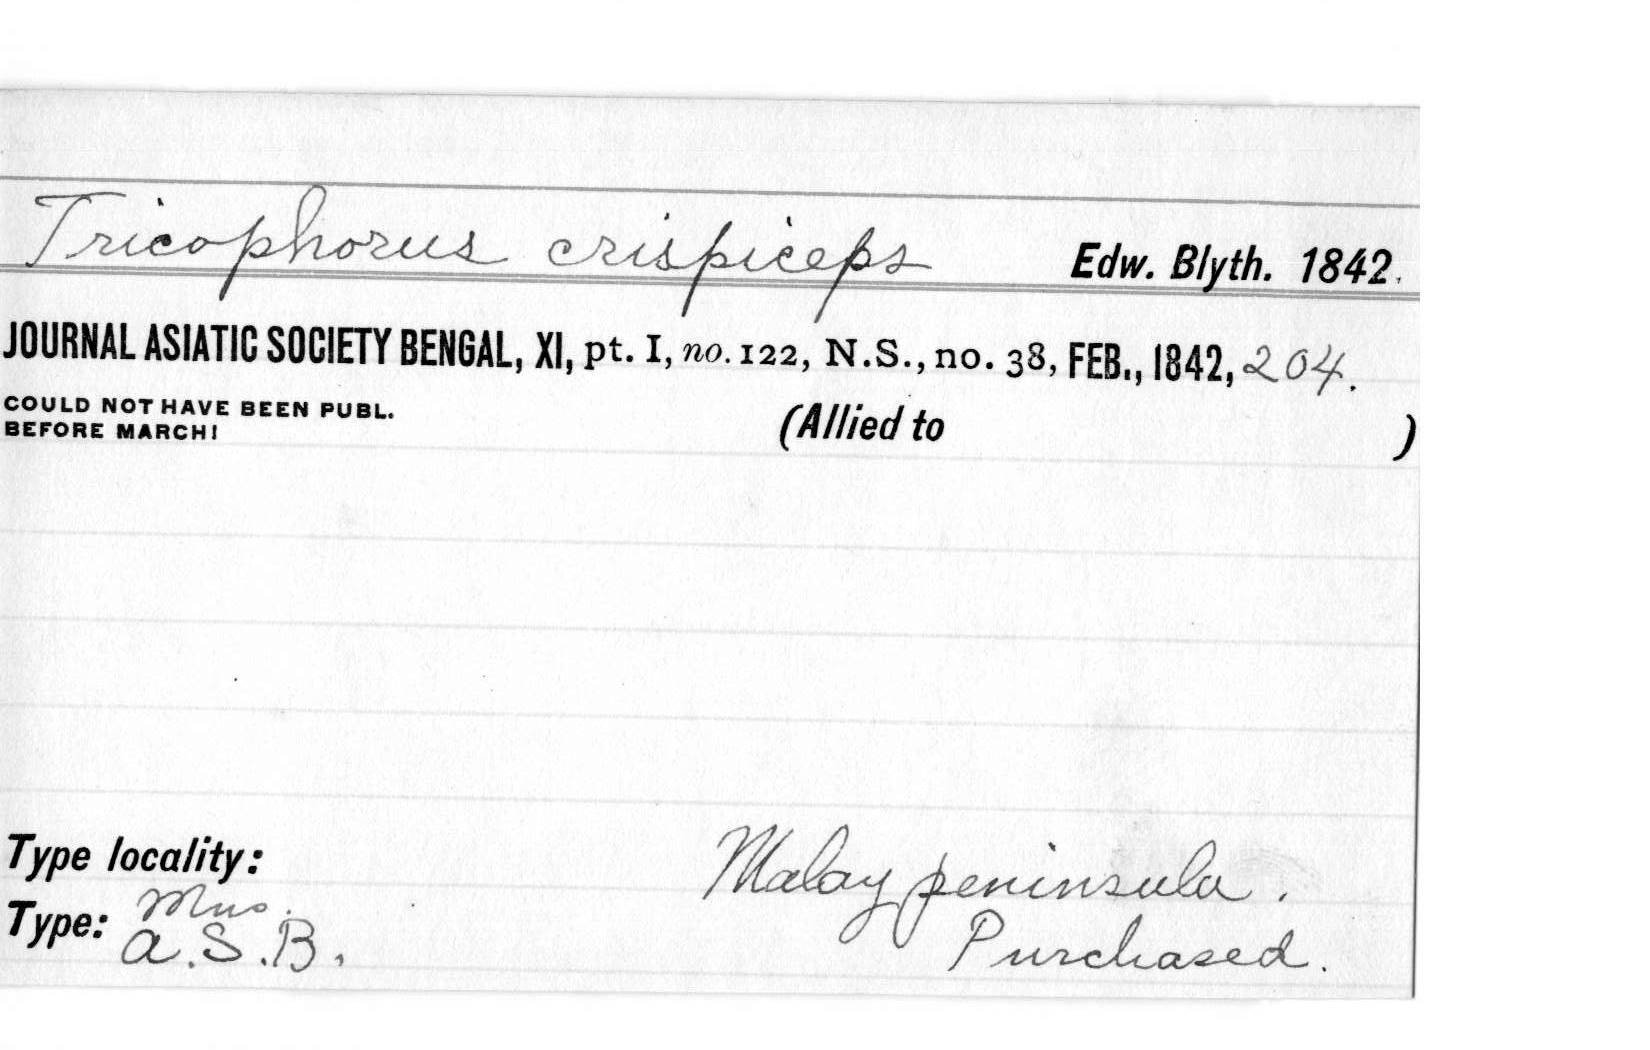 Tricophorus crispiceps Edw. Blyth. 1842.
JOURNAL ASIATIC SOCIETY BENGAL, XI, pt. I, no. 122, N.S., no. 38, FEB., 1842, 204.
COULD NOT HAVE BEEN PUBL.
BEFORE MARCH!
(Allied to )
Type locality: Malay peninsula.
Type: Mus. A.S.B. Purchased.